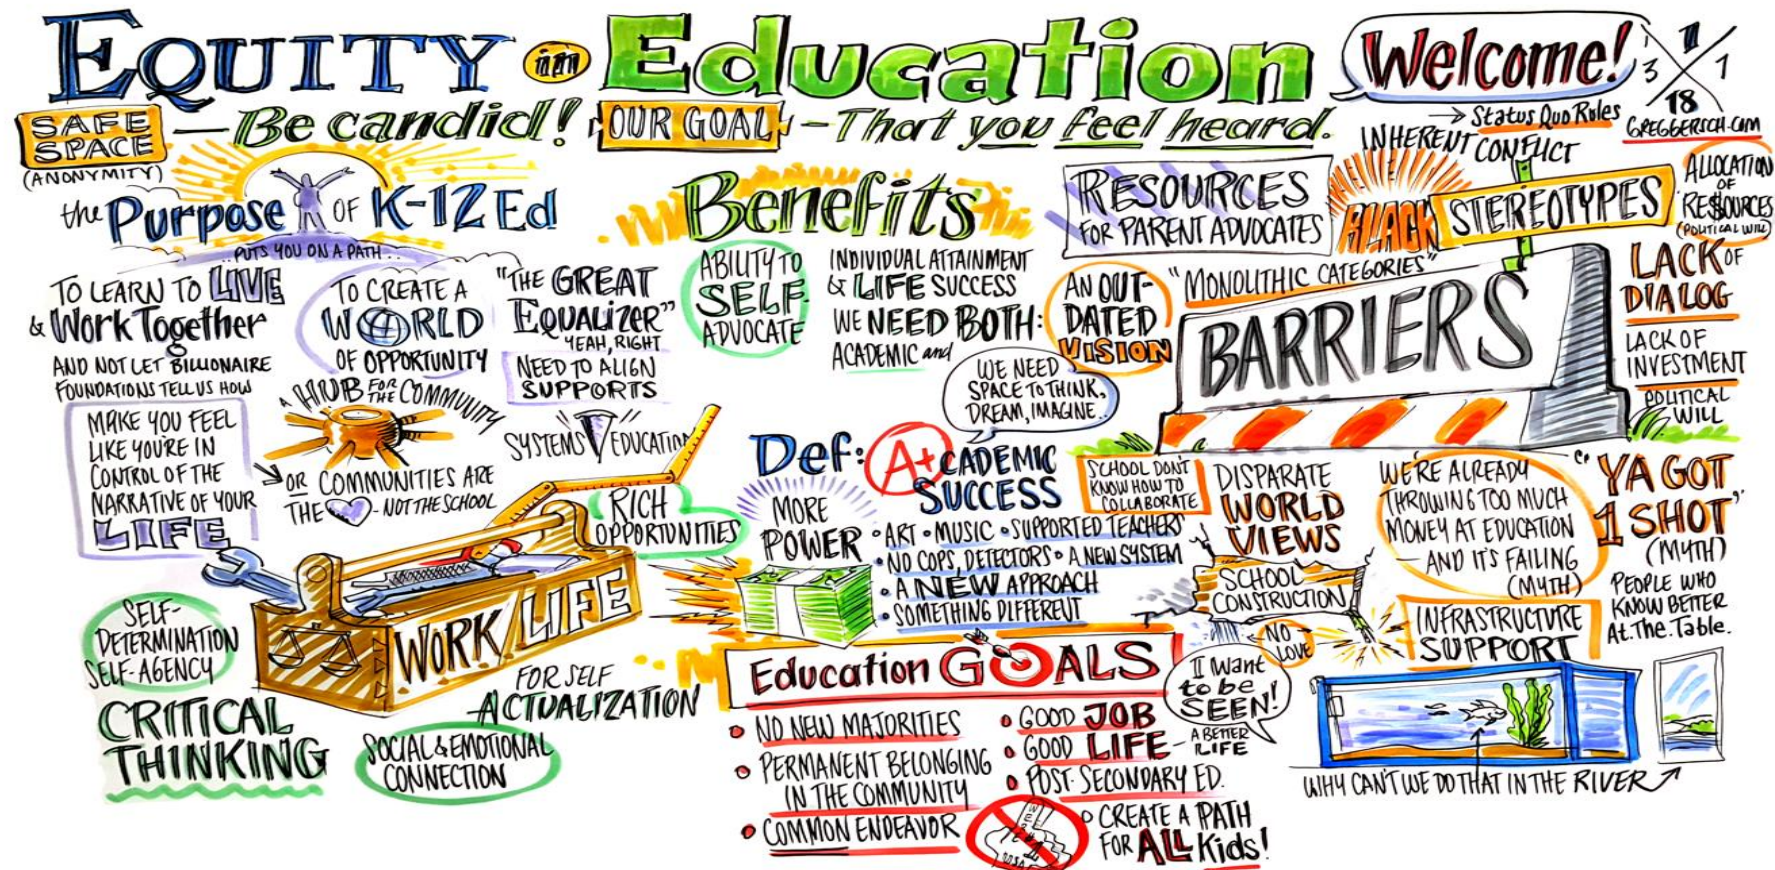 EQUITY in Education
Welcome!
1
3
1
1
18
GREGGERSCH.COM
SAFE
SPACE
(ANONYMITY)
- Be candid!
OUR GOAL
- That you feel heard.
the Purpose OF K-12 Ed
..PUTS YOU ON A PATH..
TO LEARN TO LIVE
& Work Together
AND NOT LET BILLIONAIRE
FOUNDATIONS TELL US HOW
TO CREATE A
WORLD
OF OPPORTUNITY
"THE GREAT
EQUALIZER"
YEAH, RIGHT
NEED TO ALIGN
SUPPORTS
SYSTEMS
EDUCATION
A HUB FOR THE COMMUNITY
OR COMMUNITIES ARE
THE - NOT THE SCHOOL
MAKE YOU FEEL
LIKE YOU'RE IN
CONTROL OF THE
NARRATIVE OF YOUR
LIFE
RICH
OPPORTUNITIES
WORK/LIFE
SELF-
DETERMINATION
SELF-AGENCY
CRITICAL
THINKING
FOR SELF
-ACTUALIZATION
SOCIAL & EMOTIONAL
CONNECTION
Benefits
ABILITY TO
SELF
ADVOCATE
INDIVIDUAL ATTAINMENT
& LIFE SUCCESS
WE NEED BOTH:
ACADEMIC and
WE NEED
SPACE TO THINK,
DREAM, IMAGINE..
Def: A+CADEMIC
SUCCESS
MORE
POWER
• ART • MUSIC • SUPPORTED TEACHERS
• NO COPS, DETECTORS • A NEW SYSTEM
• A NEW APPROACH
• SOMETHING DIFFERENT
Education GOALS
• NO NEW MAJORITIES
• PERMANENT BELONGING
IN THE COMMUNITY
• COMMON ENDEAVOR
• GOOD JOB
• GOOD LIFE -
A BETTER
LIFE
• POST-SECONDARY ED.
• CREATE A PATH
FOR ALL Kids!
I want
to be
SEEN!
RESOURCES
FOR PARENT ADVOCATES
AN OUT-
DATED
VISION
→ Status Quo Rules
INHERENT
CONFLICT
BLACK
STEREOTYPES
"MONOLITHIC CATEGORIES"
BARRIERS
ALLOCATION
OF
RE$OURCES
(POLITICAL WILL)
LACK OF
DIALOG
LACK OF
INVESTMENT
POLITICAL
WILL
SCHOOL DON'T
KNOW HOW TO
COLLABORATE
DISPARATE
WORLD
VIEWS
SCHOOL
CONSTRUCTION
NO
LOVE
WE'RE ALREADY
THROWING TOO MUCH
MONEY AT EDUCATION
AND IT'S FAILING
(MYTH)
"YA GOT
1 SHOT"
(MYTH)
PEOPLE WHO
KNOW BETTER
At.The.Table.
INFRASTRUCTURE
SUPPORT
WHY CAN'T WE DO THAT IN THE RIVER